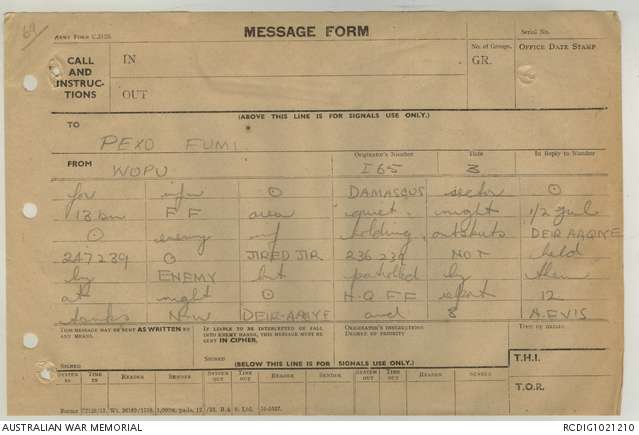 69
ARMY FORM C.2128
MESSAGE FORM
Serial No.
CALL AND INSTRUC- TIONS
IN
OUT
No. of Groups.
GR.
OFFICE DATE STAMP
(ABOVE THIS LINE IS FOR SIGNALS USE ONLY.)
TO
PEXO FUMI
FROM
Originator's Number
Date
In Reply to Number
WOPU I65 3
for infn ⊙ DAMASCUS sector ⊙
13 bn FF area quiet, night 1/2 Jul
⊙ enemy holding, outskirts DEIR AAQNE
247239 ⊙ JIREDJIR 236239 NOT held
by ENEMY but patrolled by them
at night ⊙ H.Q FF report 12
tanks NW DEIR-AALYE and 8 A.F.V'S
THIS MESSAGE MAY BE SENT AS WRITTEN BY ANY MEANS.
IF LIABLE TO BE INTERCEPTED OR FALL INTO ENEMY HANDS, THIS MESSAGE MUST BE SENT IN CIPHER.
ORIGINATOR'S INSTRUCTIONS
DEGREE OF PRIORITY
TIME OF ORIGIN
SIGNED
SIGNED
(BELOW THIS LINE IS FOR SIGNALS USE ONLY.)
T.H.I.
SYSTEM IN TIME IN READER SENDER SYSTEM OUT TIME OUT READER SENDER SYSTEM OUT TIME OUT READER SENDER
T.O.R.
AUSTRALIAN WAR MEMORIAL
RCDIG1021210